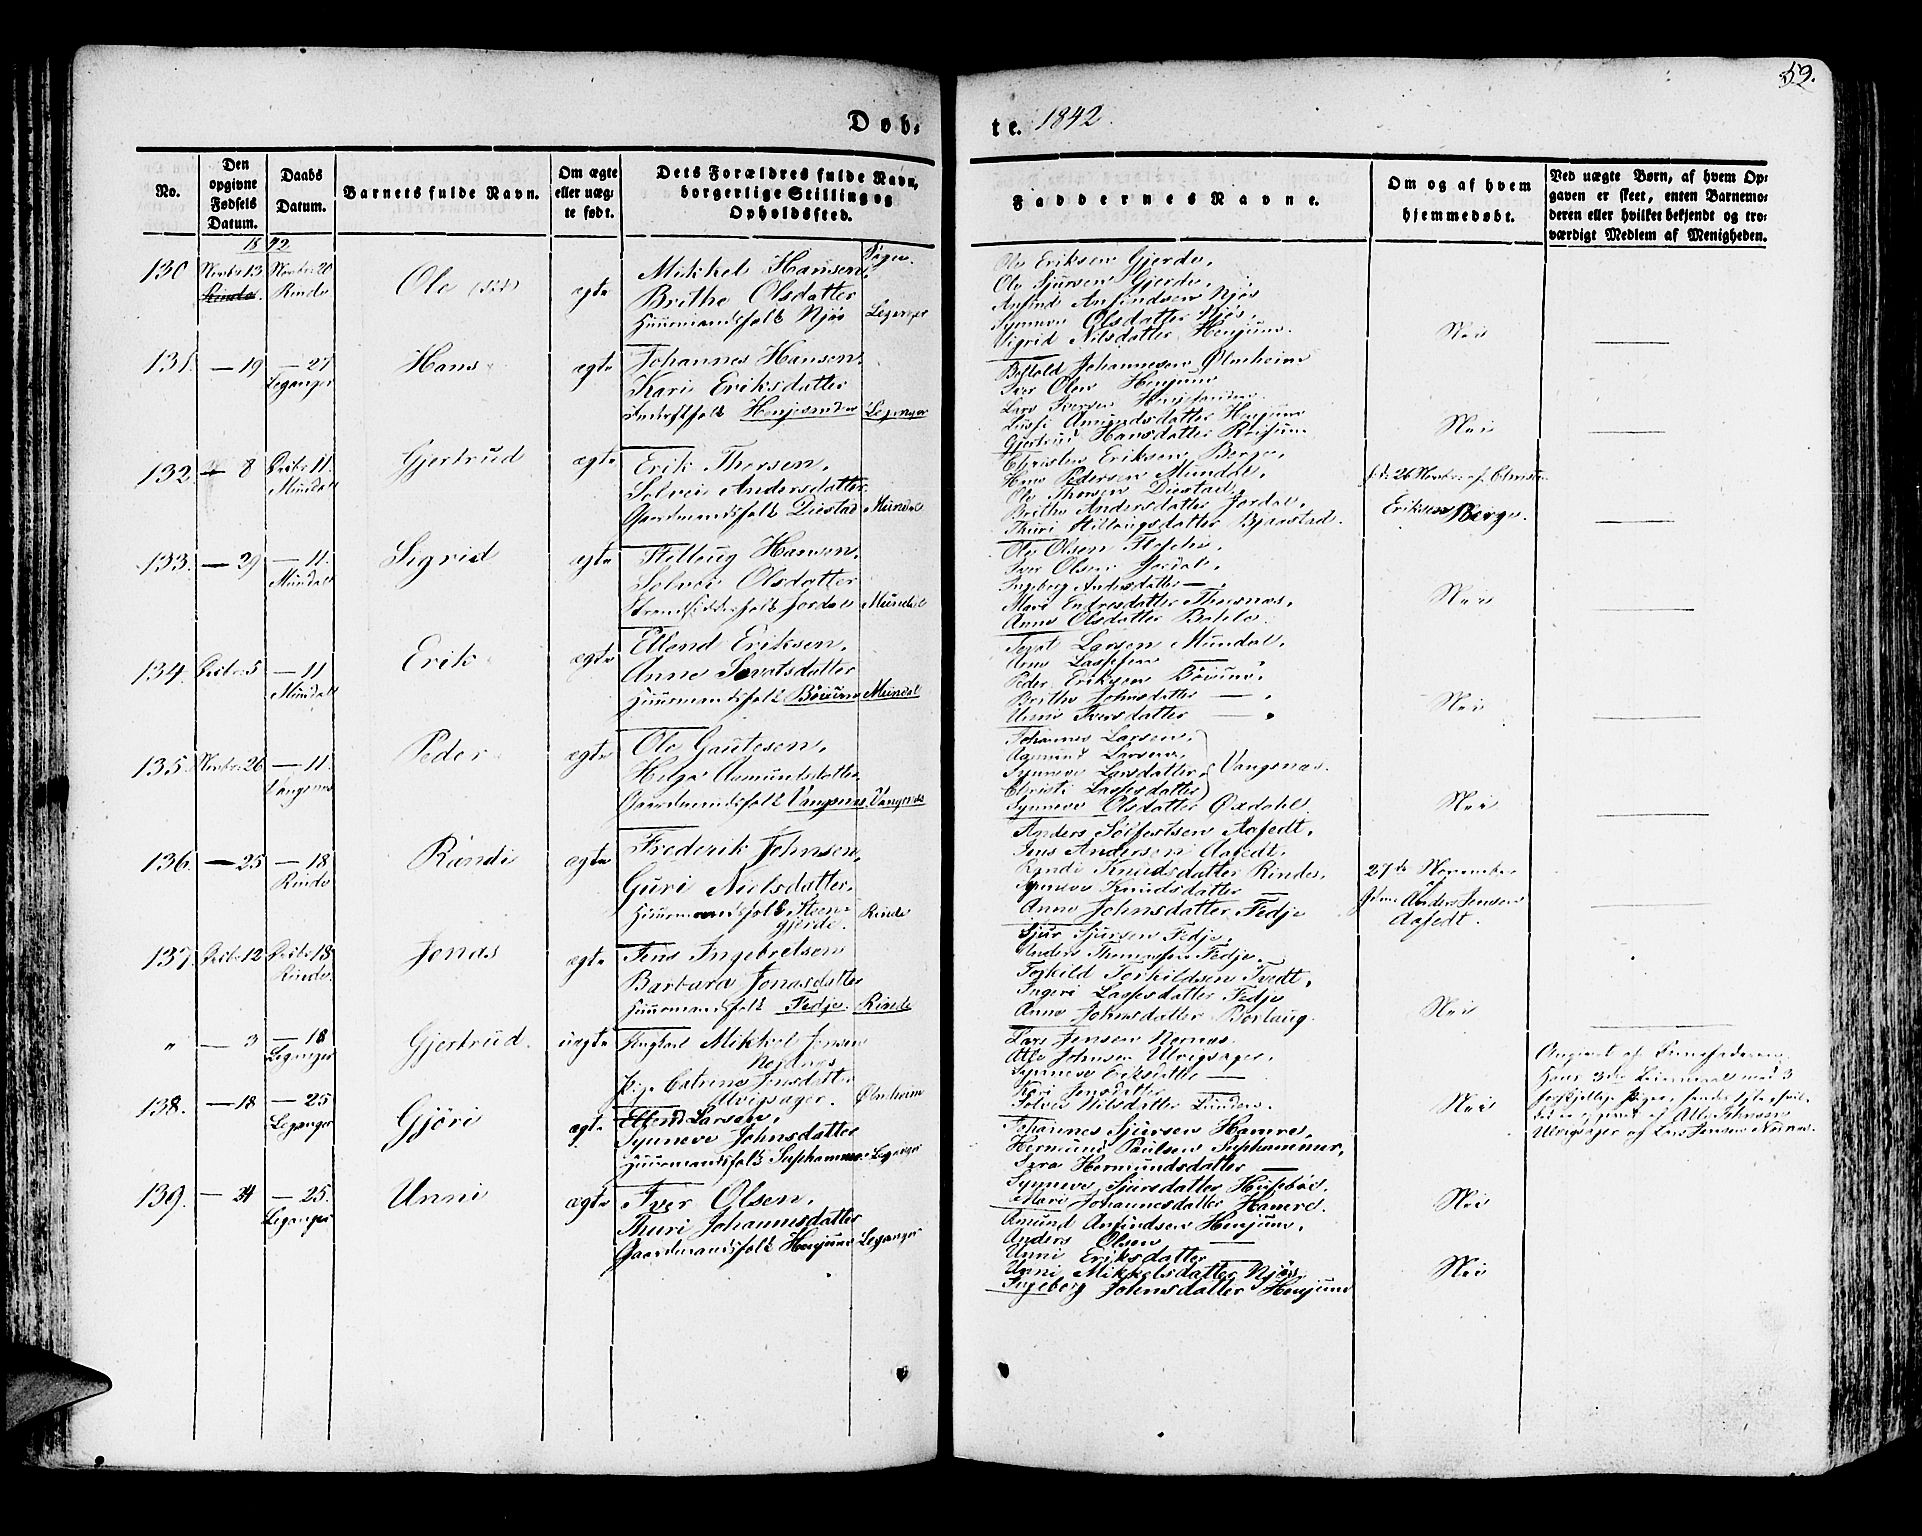 52.
Døb-
te. 1842.
No.
Den opgivne Fødsels Datum.
Daabs Datum.
Barnets fulde Navn.
Om ægte eller uæg-te født.
Dets Forældres fulde Navn, borgerlige Stilling og Opholdsted.
Faddernes Navne.
Om og af hvem hjemmedøbt.
Ved uægte Børn, af hvem Op-gaven er skeet, enten Barnemo-deren eller hvilket bekjendt og tro-værdigt Medlem af Menigheden.
1842
130 Novbr 13. Novbr 20 Rinde
Ole
ægte
Mikkel Hansen,
Brithe Olsdatter
Huusmandsfolk Njøs Leganger
Ole Eriksen Gjerde,
Ole Sjursen Gjerde,
Anfind Anfindsen Njøs
Synneve Olsdatter Njøs,
Sigrid Nilsdatter Henjum.
Nei
131. — 19 — 27 Leganger
Hans
ægte
Johannes Hansen,
Kari Eriksdatter
Henjesanden Leganger
Botold Johannesen Ølmheim
Iver Olsen Henjum
Lars Iversen Henjesanden
Amundsdatter Henjum
Gjertrud Hansdatter
Nei
132 — 8 Decbr 11. Mundal
Gjertrud
ægte
Erik Thorsen,
Solvei Andersdatter
Gaardmandsfolk Distad Mundal
Christen Eriksen Berge,
Hans Pedersen Mundal,
Ole Thorsen Distad,
Brithe Andersdatter Jordal,
Thuri Hillougsdatter Bjåstad.
26 Novbr af
Eriksen Berge.
133. — 29 — 11. Mundal
Sigrid
ægte
Hilloug Hansen,
Solvei Olsdatter
Strandsidderfolk Jordal Mundal
Ole Olsen
Iver Olsen Jordal,
Ingeborg Andersdatter —,
Mari Endresdatter
Anne Olsdatter
Nei
134. Decbr 5 — 11 Mundal
Erik
ægte
Ellend Eriksen,
Anne Sjursdatter
Huusmandsfolk Bøium Mundal
Larsen Mundal,
Arne Lassesen —
Peder Eriksen Bøium,
Brithe Johnsdatter —,
Unni Iversdatter —
Nei
135. Novbr 26 — 11. Vangsnes
Peder
ægte
Ole Gautesen,
Helga Aamundsdatter
Gaardmandsfolk Vangsnes Vangsnes
Johannes Larsen,
Aamund Larsen,
Synneve Larsdatter, Vangsnæs.
Christi Lassesdatter
Synneve Olsdatter Oxdahl
Nei
136. — 25 — 18 Rinde
Randi
ægte
Frederik Johnsen,
Guri Nielsdatter,
Huusmandsfolk Steen-
gjerde. Rinde
Anders Aafedt,
Jens Andersen Aafedt,
Knudsdatter Rinde,
Synneve Knudsdatter
Anne Johnsdatter Fedje
27de November
af
Anders Jensen
Aafedt.
137. Decbr 12 Decbr 18 Rinde.
Jonas
ægte
Jens Ingebretsen
Barbara Jonasdatter
Huusmandsfolk Fedje. Rinde
Sjur Sjursen Fedje,
Anders Thomassen Fedje,
Torkild Torkildsen Tvedt,
Ingeri Lassesdatter Fedje
Anne Johnsdatter Borlaug.
Nei
" — 3 — 18 Leganger
Gjertrud.
uægte
Ungkarl Mikkel Jensen
Nornes
Pige Catrine Jensdatter
Ulvigsager. Ølmheim
Lars Jensen Nornæs.
Atle Johnsen Ulvigsager.
Synneve Eriksdatter —
Kari Jensdatter
Solvei Nilsdatter Lunden.
Nei
Angivet af Barnefaderen.
Hans 3die Leiermaal med 3
forskjellige Piger,
af Atle Johnsen
Ulvigsager og Lars Jensen Nornæs.
138. — 18 — 25 Leganger
Gjøri
ægte
Ellend Larsen,
Synneve Johnsdatter
Huusmandsfolk Suphammer Leganger
Johannes Sjursen Hamre,
Hermund Paulsen Suphammer,
Hermundsdatter —
Synneve Sjursdatter Husebøe.
Mari Johannesdatter Hamre.
Nei
139. — 24 — 25. Leganger
Unni
ægte
Iver Olsen,
Thuri Johannesdatter
Gaardmandsfolk Henjum Leganger
Amund Anfindsen Henjum,
Anders Olsen —
Unni Eriksdatter —
Unni Mikkelsdatter Njøs
Ingeborg Johnsdatter Henjum
Nei